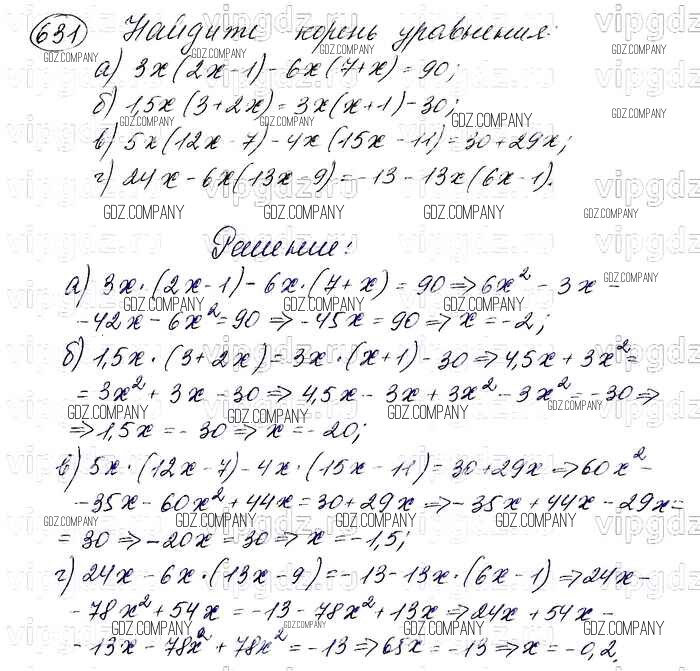 631 Найдите корень уравнения:
а) 3x(2x-1)-6x(7+x)=90;
б) 1,5x(3+2x)=3x(x+1)-30;
в) 5x(12x-7)-4x(15x-11)=30+29x;
г) 24x-6x(13x-9)=-13-13x(6x-1).
Решение:
а) 3x·(2x-1)-6x·(7+x)=90⇒6x²-3x-
-42x-6x²=90⇒-45x=90⇒x=-2;
б) 1,5x·(3+2x)=3x·(x+1)-30⇒4,5x+3x²=
=3x²+3x-30⇒4,5x-3x+3x²-3x²=-30⇒
⇒1,5x=-30⇒x=-20;
в) 5x·(12x-7)-4x·(15x-11)=30+29x⇒60x²-
-35x-60x²+44x=30+29x⇒-35x+44x-29x=
=30⇒-20x=30⇒x=-1,5;
г) 24x-6x·(13x-9)=-13-13x·(6x-1)⇒24x-
-78x²+54x=-13-78x²+13x⇒24x+54x-
-13x-78x²+78x²=-13⇒65x=-13⇒x=-0,2.